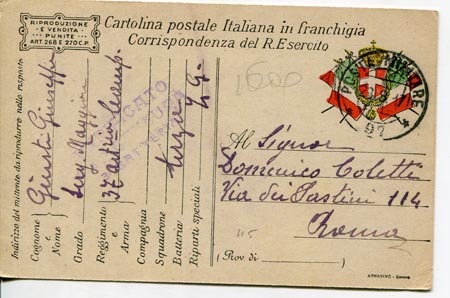 RIPRODUZIONE
E VENDITA
PUNITE
ART. 268 E 270 C.P.
Cartolina postale Italiana in franchigia
Corrispondenza del R. Esercito
POSTA MILITARE
97
1600
Al Signor
Domenico Coletti
Via dei Pastini 114
Roma
(Prov. di )
45
ARMANINO - Genova
Indirizzo del mittente da riprodurre nelle risposte
Cognome e Nome Giusti Giuseppe
Grado Serg. Maggiore
Reggimento e Arma 37
Compagnia
Squadrone
Batteria terza
Riparti speciali Z.G.